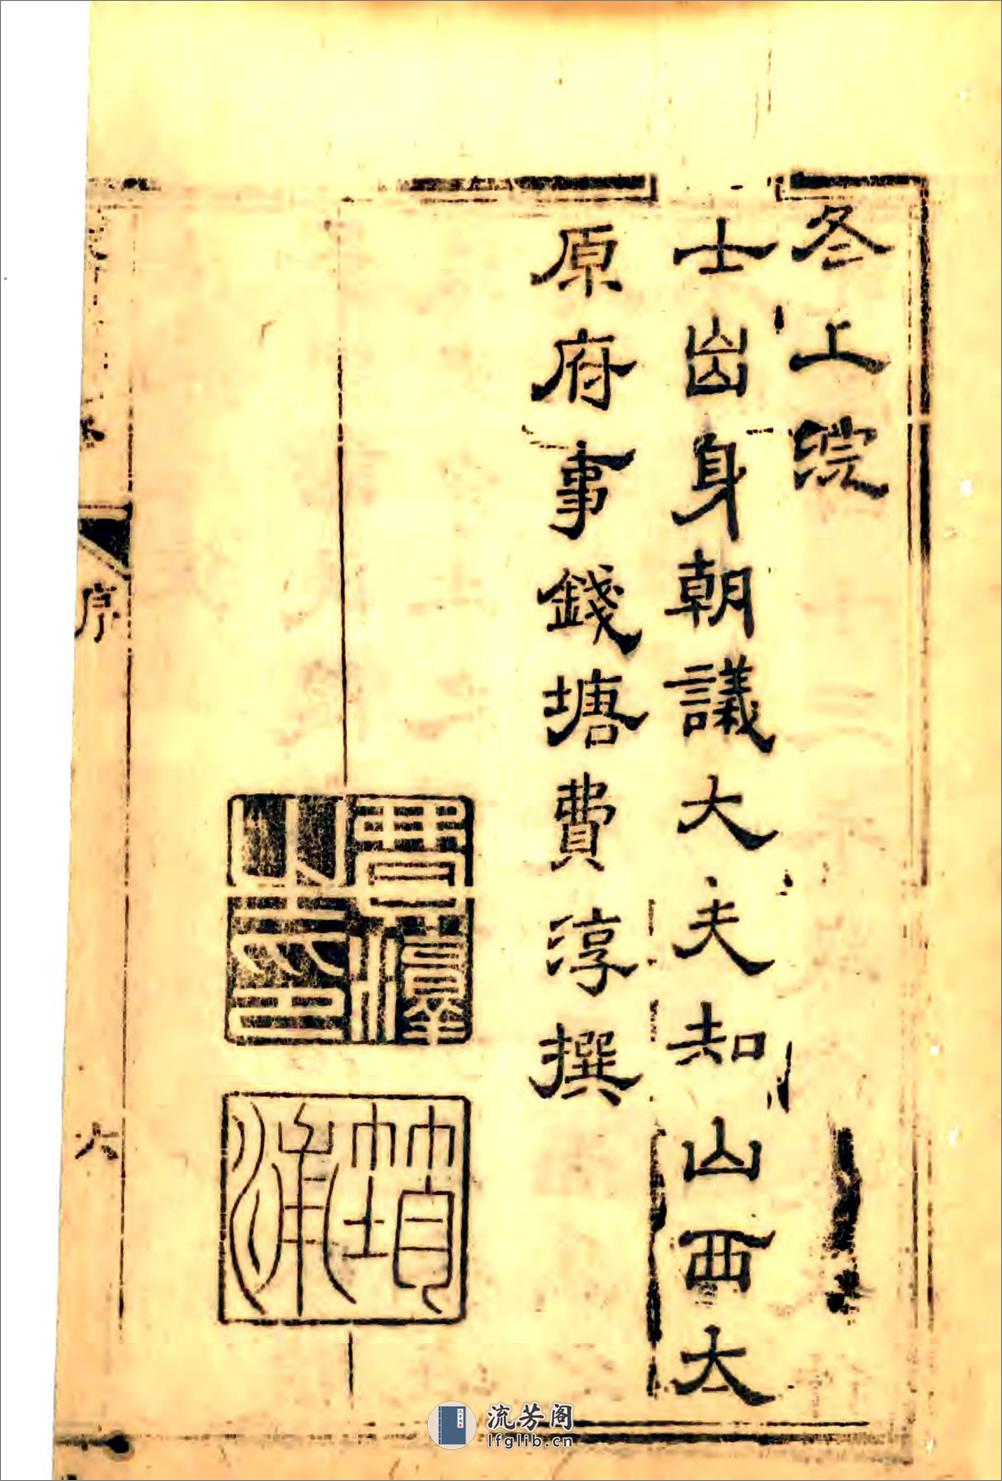 冬上浣
士出身朝議大夫知山西太
原府事錢塘費淳撰
序
六
流芳阁
lfglib.cn